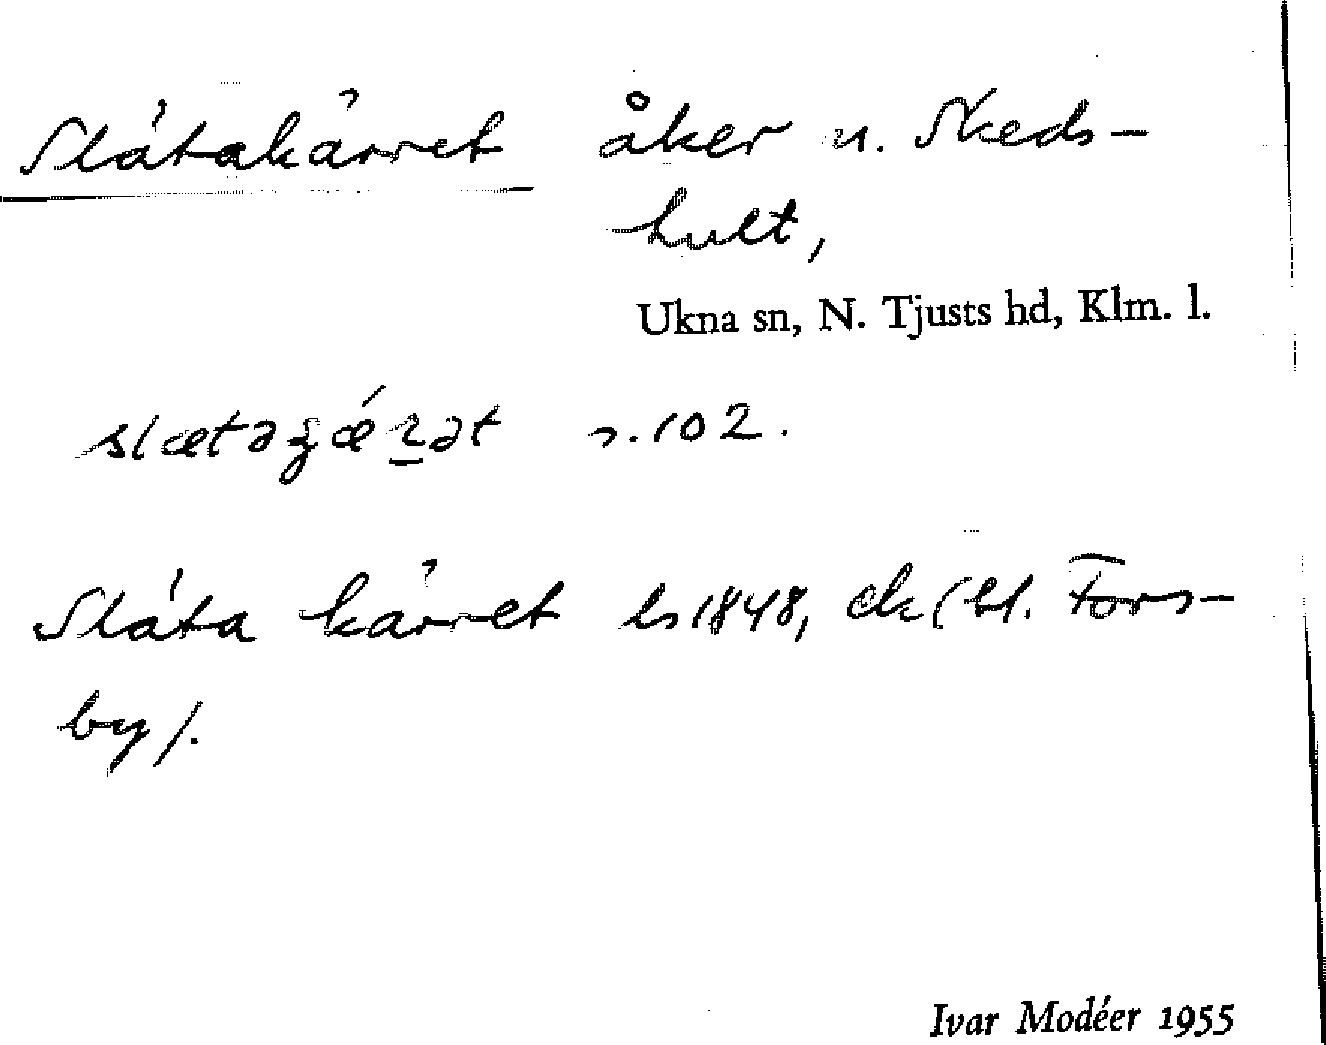 Slätakärret åker u. Skeds-
hult,
Ukna sn, N. Tjusts hd, Klm. l.
slætəgǽrət r.102.
Släta kärret ls 1848, ek (bl. Fors-
by).
Ivar Modéer 1955